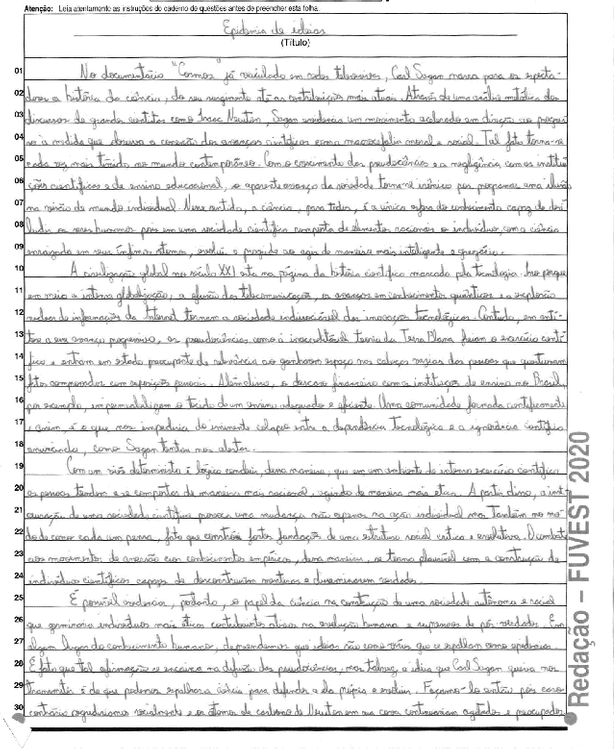 Atenção: Leia atentamente as instruções do caderno de questões antes de preencher esta folha.
Epidemia de ideias
(Título)
01 No documentário "Cosmos", já veiculado em redes televisivas, Carl Sagan narra para os especta-
02 dores a história da ciência, do seu surgimento até as contribuições mais atuais. Através de uma análise metódica dos
03 discursos de grandes cientistas como Isaac Newton, Sagan evidencia um movimento acelerado em direção ao progres-
04 so à medida que observa a conexão dos avanços científicos com a macrocefalia mental e social. Tal fato torna-se
05 cada vez mais temido no mundo contemporâneo. Com o crescimento das pseudociências e a negligência com as institui-
06 ções científicas e de ensino educacional, o aparente avanço da sociedade torna-se irônico por programar uma ilusão
07 na visão de mundo individual. Nesse sentido, a ciência, para todos, é a única esfera do conhecimento capaz de
08 os seres humanos pois em uma sociedade científica composta de elementos racionais os indivíduos, com a ciência
09 enraizada em seus ínfimos átomos, evolui e progride ao agir de maneira mais inteligente e gregária.
10 A civilização global no século XXI está na página da história científica marcada pela tecnologia. Isso porque
11 em meio a intensa globalização, a difusão das telecomunicações, os avanços em conhecimentos quânticos e a explosão
12 de informações da Internet tornam a sociedade indissociável das inovações tecnológicas. Contudo, em antí-
13 tese a esse avanço progressivo, as pseudociências como a inacreditável teoria da Terra Plana ferem o exercício cientí-
14 fico e entram em estado preocupante de relevância ao ganharem espaço nas cabeças vazias das pessoas que questionam
15 fatos comprovados com suposições pessoais. Além disso, o descaso financeiro com as instituições de ensino no Brasil,
16 por exemplo, impossibilizam o tecido de um ensino adequado e eficiente. Uma comunidade formada cientificamente
17 é, assim, é o que nos impediria do iminente colapso entre a dependência tecnológica e a ignorância científica
18 anunciada, como Sagan tentou nos alertar.
19 Com um viés determinista é lógico concluir, dessa maneira, que em um ambiente de intenso exercício científico
20 as pessoas tendem a se comportar de maneira mais racional, agindo de maneira mais ética. A partir disso, a inst
21 auração de uma sociedade científica provoca uma mudança não apenas na ação individual mas também no mo-
22 do de como cada um pensa, fato que constrói fortes fundações de uma estrutura social crítica e evolutiva. O combate
23 aos movimentos de aversão aos conhecimentos empíricos, dessa maneira, se torna plausível com a construção de
24 indivíduos científicos capazes de desconstruírem mentiras e disseminarem verdades.
25 É possível evidenciar, portanto, o papel da ciência na construção de uma sociedade autônoma e racional
26 que germinaria indivíduos mais éticos contribuintes ativos na evolução humana e supressores de pós verdades. Em
27 algum lugar do conhecimento humano, depreendemos que ideias são como vírus que se espalham como epidemias.
28 É fato que tal afirmação se encaixa na difusão das pseudociências, mas talvez, a ideia que Carl Sagan queria nos
29 transmitir é de que podemos espalhar a ciência para defender a ela própria e evoluir. Façamos-lo então, pois caso
30 contrário regrediríamos socialmente e os átomos de carbono de Newton em sua cova continuariam agitados e preocupados.
Redação – FUVEST 2020